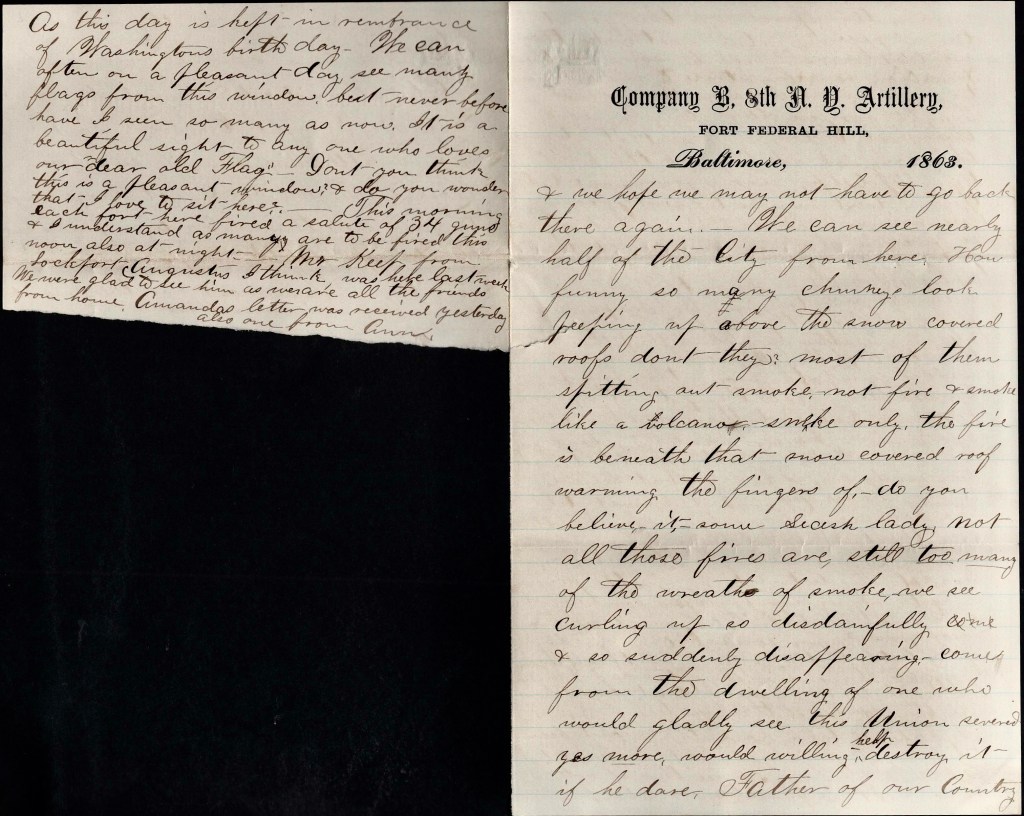 As this day is kept in rembrance
of Washingtons birth day - We can
often on a pleasant day see many
flags from this window. best never before
have I seen so many as now. It is a
beautiful sight to any one who loves
our "dear old Flag." Dont you think
this is a pleasant window? & do you wonder
that I love to sit here? — This morning
each fort here fired a salute of 34 guns
& I understand as many are to be fired this
noon also at night — Mr Keep from
Lockport, Augustus I think, was here last week
We were glad to see him as we are all the friends
from home. Amandas letter was received yesterday
also one from Ann.
Company B, 8th N. Y. Artillery,
FORT FEDERAL HILL,
Baltimore, 1863.
& we hope we may not have to go back
there again. - We can see nearly
half of the City from here. How
funny so many chimneys look
peeping up above the snow covered
roofs dont they? most of them
spitting out smoke, not fire & smoke
like a volcano, - smoke only, the fire
is beneath that snow covered roof
warming the fingers of, - do you
believe it, - some Secesh lady, not
all those fires are, still too many
of the wreaths of smoke, we see
curling up so disdainfully come
& so suddenly disappearing - comes
from the dwelling of one who
would gladly see this Union severed
yes more, would willing help destroy it
if he dare, Father of our Country